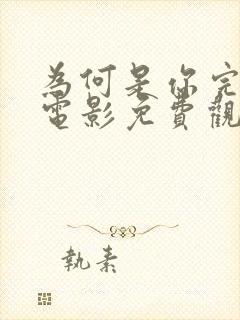 為何是你完
電影免費觀
執素